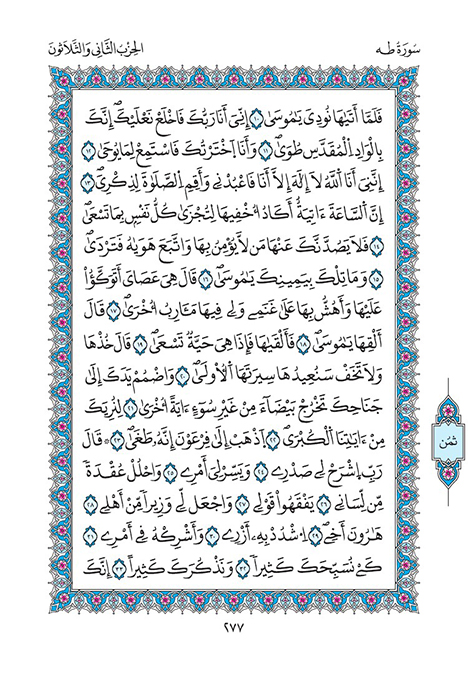 سُورَةُ طَهَ
الحِزْبُ الثَّانِي وَالثَّلَاثُونَ
فَلَمَّآ أَتَيٰهَا نُودِيَ يَٰمُوسَىٰٓ ١٠ إِنِّيَ أَنَا رَبُّكَ فَاخْلَعْ نَعْلَيْكَ إِنَّكَ
بِالْوَادِ اِلْمُقَدَّسِ طُوَىٰ ١١ وَأَنَا اَخْتَرْتُكَ فَاسْتَمِعْ لِمَا يُوحَىٰٓ ١٢
إِنَّنِيَ أَنَا اَللَّهُ لَآ إِلَٰهَ إِلَّآ أَنَا فَاعْبُدْنِے وَأَقِمِ اِلصَّلَوٰةَ لِذِكْرِيَ ١٣
إِنَّ اَلسَّاعَةَ ءَاتِيَةٌ اَكَادُ أُخْفِيهَا لِتُجْزَىٰ كُلُّ نَفْسِۢ بِمَا تَسْعَىٰ
١٤ فَلَا يَصُدَّنَّكَ عَنْهَا مَن لَّا يُؤْمِنُ بِهَا وَاتَّبَعَ هَوَيٰهُ فَتَرْدَىٰ
١٥ وَمَا تِلْكَ بِيَمِينِكَ يَٰمُوسَىٰ ١٦ قَالَ هِيَ عَصَايَ أَتَوَكَّؤُاْ
عَلَيْهَا وَأَهُشُّ بِهَا عَلَىٰ غَنَمِے وَلِيَ فِيهَا مَـَٔارِبُ أُخْرَىٰ ١٧ قَالَ
أَلْقِهَا يَٰمُوسَىٰ ١٨ فَأَلْقَيٰهَا فَإِذَا هِيَ حَيَّةٌ تَسْعَىٰ ١٩ قَالَ خُذْهَا
وَلَا تَخَفْ سَنُعِيدُهَا سِيرَتَهَا اَلُاولَىٰ ٢٠ وَاضْمُمْ يَدَكَ إِلَىٰ
جَنَاحِكَ تَخْرُجْ بَيْضَآءَ مِنْ غَيْرِ سُوٓءٍ ءَايَةً اُخْرَىٰ ٢١ لِنُرِيَكَ
مِنَ اٰيَٰتِنَا اَلْكُبْرَىٰ ٢٢ اَ۪ذْهَبِ اِلَىٰ فِرْعَوْنَ إِنَّهُۥ طَغَىٰ ٢٣ ۞ قَالَ
رَبِّ اِ۪شْرَحْ لِے صَدْرِے ٢٤ وَيَسِّرْ لِيَ أَمْرِے ٢٥ وَاحْلُلْ عُقْدَةً
مِّن لِّسَانِے ٢٦ يَفْقَهُواْ قَوْلِے ٢٧ وَاجْعَل لِّے وَزِيراً مِّنَ اَهْلِے ٢٨
هَٰرُونَ أَخِے ٢٩ اِ۟شْدُدْ بِهِۦٓ أَزْرِے ٣٠ وَأَشْرِكْهُ فِےٓ أَمْرِے ٣١
كَےْ نُسَبِّحَكَ كَثِيراً ٣٢ وَنَذْكُرَكَ كَثِيراً ٣٣ اِنَّكَ
ثُمُن
٢٧٧